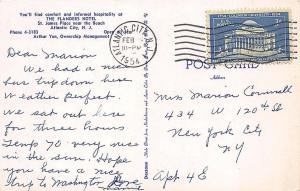 You'll find comfort and informal hospitality at
THE FLANDERS HOTEL
St. James Place near the Beach
Atlantic City, N. J.
Phone 4-3183
Arthur Yon, Ownership Management
ATLANTIC CITY, N.J.
FEB
11-PM
1954
POST CARD
Address
Dear Marion
We had a nice
bus trip down here
Weather perfect.
We sat out here
for three hours
Temp 70 very nice
in the sun. Hope
you have a nice
trip to Washington
Miss Marion Connell
434 W 120th St
New York City
NY
Apt 4E